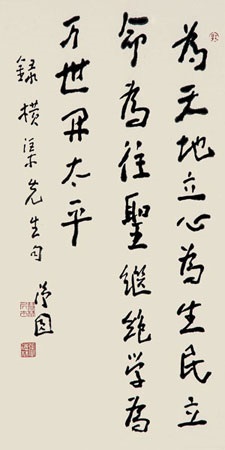 為天地立心為生民立
命為往聖繼絕学為
万世開太平
録橫渠先生句